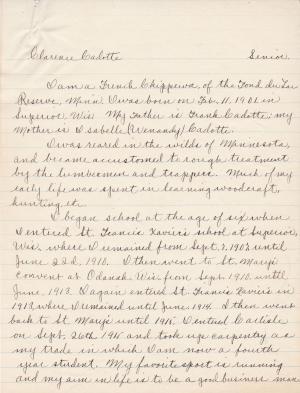 Clarence Cadotte Senior.
I am a French Chippewa, of the Fond du Lac
Reserve, Minn. I was born on Feb. 11, 1901 in
Superior, Wis. My Father is Frank Cadotte; my
Mother is Isabelle (Wenandy) Cadotte.
I was reared in the wilds of Minnesota,
and became accustomed to rough treatment
by the lumbermen and trappers. Much of my
early life was spent in learning woodcraft,
hunting, etc.
I began school at the age of six when
I entered St. Francis Xavier's school at Superior,
Wis. where I remained from Sept. 7, 1907 until
June 22d, 1910. I then went to St. Mary's
Convent at Odanah, Wis. from Sept. 1910 until
June, 1913. I again entered St. Francis Xavier's in
1913 where I remained until June 1914. I then went
back to St. Mary's until 1915. I entered Carlisle
on Sept. 26th 1915 and took up carpentry as
my trade in which I am now a fourth
year student. My favorite sport is running
and my aim in life is to be a good business man